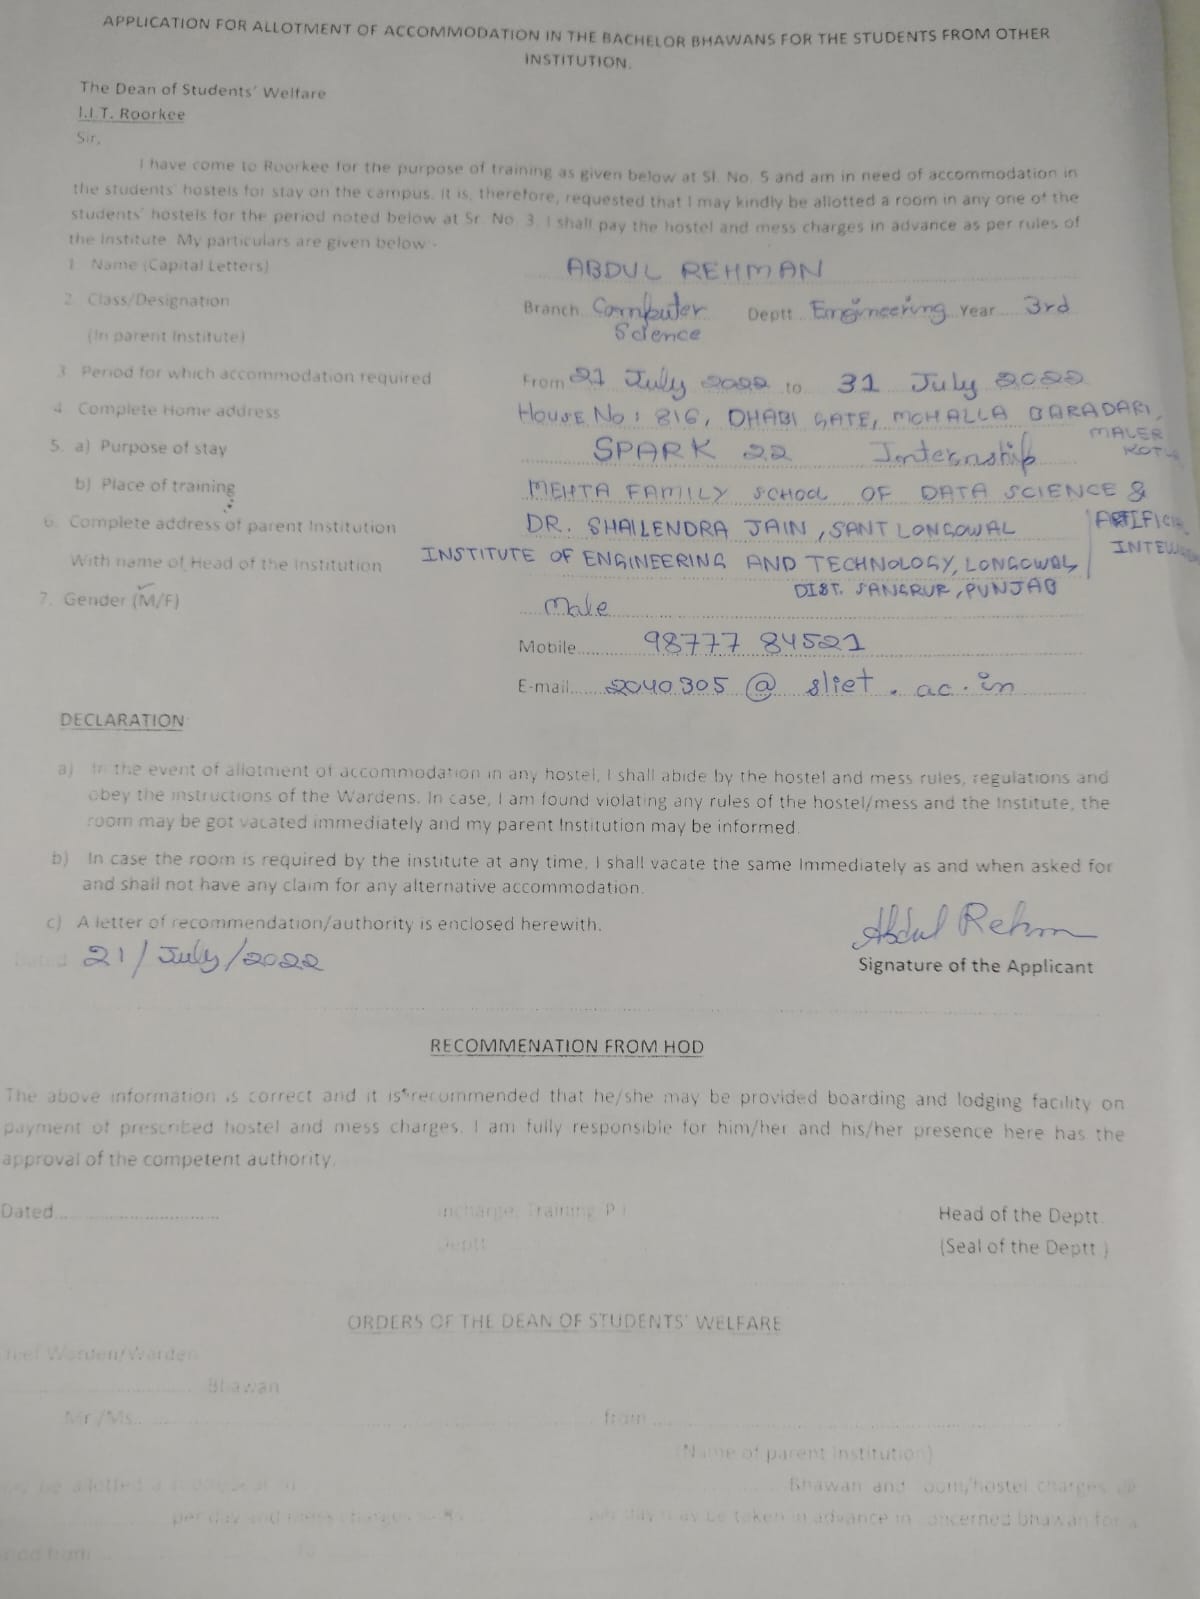 APPLICATION FOR ALLOTMENT OF ACCOMMODATION IN THE BACHELOR BHAWANS FOR THE STUDENTS FROM OTHER
INSTITUTION.
The Dean of Students' Welfare
I.I.T. Roorkee
Sir,
I have come to Roorkee for the purpose of training as given below at Sl. No. 5 and am in need of accommodation in
the students' hostels for stay on the campus. It is, therefore, requested that I may kindly be allotted a room in any one of the
students' hostels for the period noted below at Sr. No. 3. I shall pay the hostel and mess charges in advance as per rules of
the Institute. My particulars are given below:-
1. Name (Capital Letters) ABDUL REHMAN
2. Class/Designation Branch Computer Science Deptt. Engineering Year 3rd
(In parent Institute)
3. Period for which accommodation required From 21 July 2022 to 31 July 2022
4. Complete Home address House No: 816, DHABI GATE, MOHALLA BARADARI, MALER KOTLA
5. a) Purpose of stay SPARK 22 Internship
b) Place of training MEHTA FAMILY SCHOOL OF DATA SCIENCE & ARTIFICIAL
6. Complete address of parent Institution DR. SHAILENDRA JAIN, SANT LONGOWAL
With name of Head of the Institution INSTITUTE OF ENGINEERING AND TECHNOLOGY, LONGOWAL,
DIST. SANGRUR, PUNJAB
7. Gender (M/F) Male
Mobile 98777 84521
E-mail 2040305@sliet.ac.in
DECLARATION
a) In the event of allotment of accommodation in any hostel, I shall abide by the hostel and mess rules, regulations and
obey the instructions of the Wardens. In case, I am found violating any rules of the hostel/mess and the Institute, the
room may be got vacated immediately and my parent Institution may be informed.
b) In case the room is required by the institute at any time, I shall vacate the same Immediately as and when asked for
and shall not have any claim for any alternative accommodation.
c) A letter of recommendation/authority is enclosed herewith.
Dated 21/July/2022
Abdul Rehm
Signature of the Applicant
RECOMMENATION FROM HOD
The above information is correct and it is recommended that he/she may be provided boarding and lodging facility on
payment of prescribed hostel and mess charges. I am fully responsible for him/her and his/her presence here has the
approval of the competent authority.
Dated Incharge, Training Head of the Deptt.
Deptt (Seal of the Deptt.)
ORDERS OF THE DEAN OF STUDENTS' WELFARE
Warden/Warden
Bhawan
Mr./Ms. from
(Name of parent Institution)
be allotted a Bhawan and room/hostel charges @
per day and mess charges per day may be taken in advance in concerned bhawan for a
from to